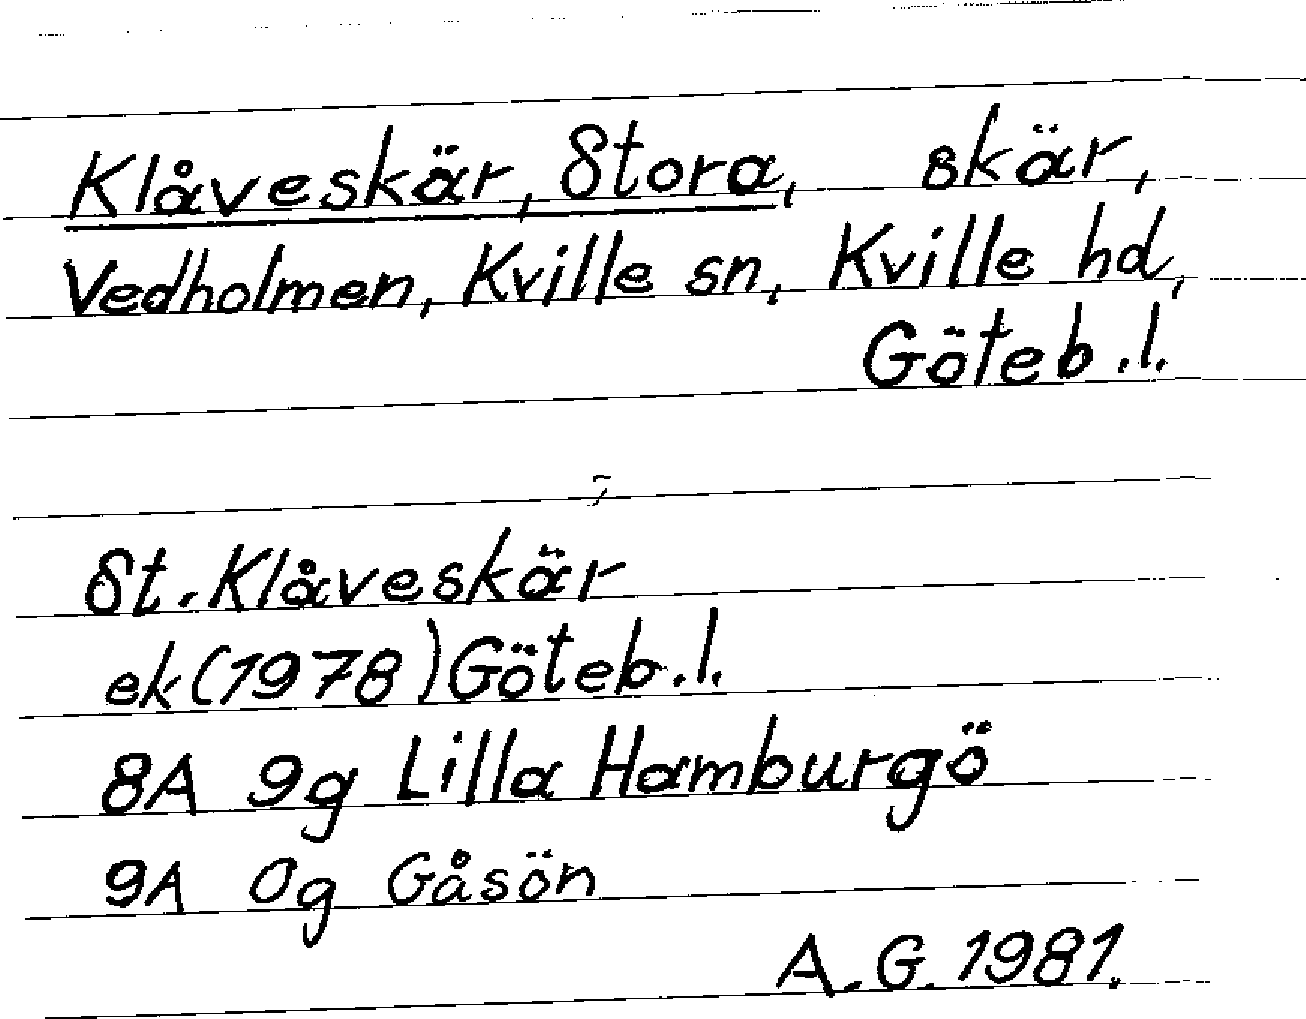 Klåveskär, Stora, skär,
Vedholmen, Kville sn, Kville hd,
Göteb.l.
St. Klåveskär
ek (1978) Göteb.l.
8A 9g Lilla Hamburgö
9A 0g Gåsön
A.G. 1981.